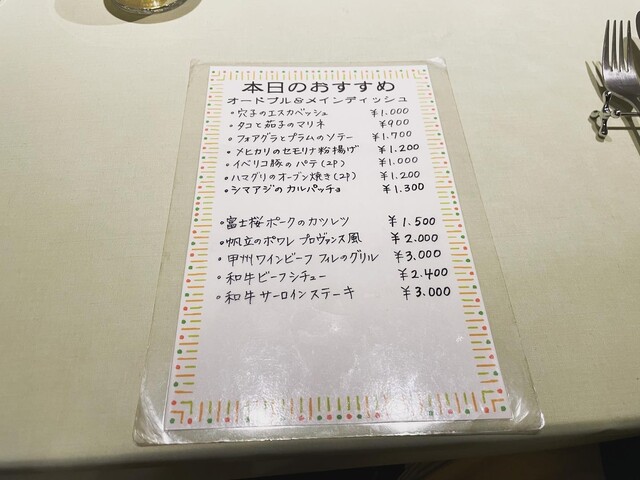 本日のおすすめ
オードブル&メインディッシュ
・穴子のエスカベッシュ ¥1.000
・タコと茄子のマリネ ¥900
・フォアグラとプラムのソテー ¥1.700
・メヒカリのセモリナ粉揚げ ¥1.200
・イベリコ豚のパテ(2P) ¥1.000
・ハマグリのオーブン焼き(2P) ¥1.200
・シマアジのカルパッチョ ¥1.300
・富士桜ポークのカツレツ ¥1.500
・帆立のポワレ プロヴァンス風 ¥2.000
・甲州ワインビーフ フィレのグリル ¥3.000
・和牛ビーフシチュー ¥2.400
・和牛サーロインステーキ ¥3.000